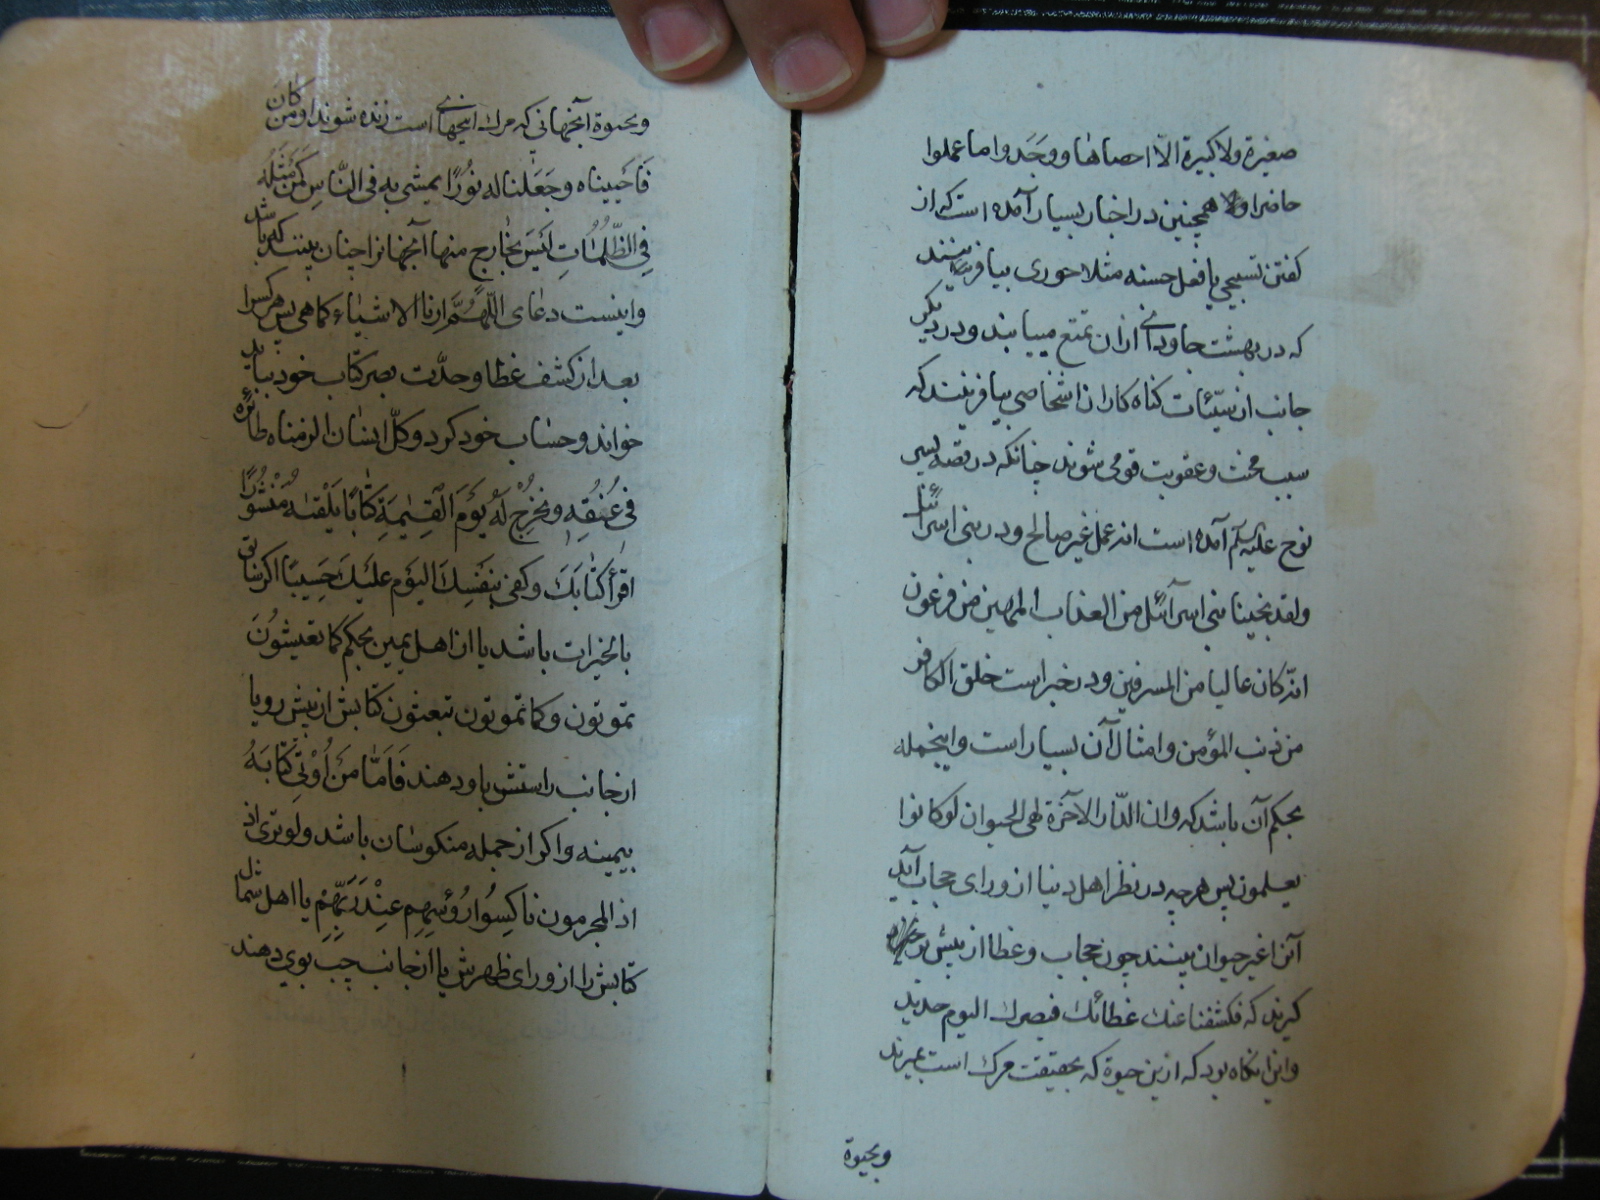 صغیرة ولا کبیرة الّا احصاها ووجدوا ما عملوا
حاضرا و همچنین در اخبار بسیار آمده است که از
کفتن تسبیحی یا فعل حسنه مثلا حوری بیافرینند
که در بهشت جاودانی ازان تمتع مییابند و در دیکر
جانب از سیّئات کناه کاران اشخاصی بیافرینند که
سبب محنت و عقوبت قومی شوند چنانکه در قصه پسر
نوح علیه السلم آمده است انه عمل غیر صالح و در بنی اسرائیل
ولقد نجینا بنی اسرآئیل من العذاب المهین من فرعون
انّه کان عالیا من المسرفین و در خبر است خلق الکافر
من ذنب المؤمن و امثال آن بسیار است و اینجمله
بحکم آن باشد که وان الدّار الآخرة لهی الحیوان لوکانوا
یعلمون پس هرچه در نظر اهل دنیا از ورای حجاب آید
آنرا غیر حیوان بینند چون حجاب و غطا از پیش بر
کیرند که فکشفنا عنک غطائک فبصرک الیوم حدید
و این انکاه بود که ازین حیوة که بحقیقت مرک است بمیرند
وبحیوة
وبحیوة آنجهانی که مرک اینجهانی است زنده شوند اومن کان
فَاَحْیَیناه وجَعَلنا له نُورًا یمشی به فی النّاسِ کَمَنْ مَثَلُهُ
فِی الظّلُمَاتِ لَیْسَ بِخَارِجٍ منها آنجهانرا چنان بینند که باشد
و اینست دعای اللّهُمَّ ارنا الاشیاء کما هی پس هرکسرا
بعد از کشف غطا و حدّت بصر کتاب خود بباید
خواند و حساب خود کرد وکلّ انسان الزمناه طائره
فِی عُنُقِهِ وَنُخْرِجُ لَهُ یَوْمَ الْقِیٰمَةِ کِتَابًا یَلْقَیٰهُ مَنْشُوْرًا
اقرأ کتَابَکَ وکفی بِنَفْسِکَ الیَوم عَلَیْکَ حَسِیبًا اکر سابق
بالخیرات باشد یا از اهل یمین بحکم کما تعیشونَ
تموتون وکما تموتون تبعثون کتابش از پیش رو یا
از جانب راستش باو دهند فَاَمَّا مَنْ اُوْتِیَ کِتَابَهُ
بیمینه و اکر از جمله منکوسان باشد ولو تری اذ
اذ المجرمون ناکِسُوا رُؤسِهِم عِنْدَ رَبِّهِمْ یا اهل شمال
کتابش را از ورای ظهرش یا از جانب چپ بوی دهند